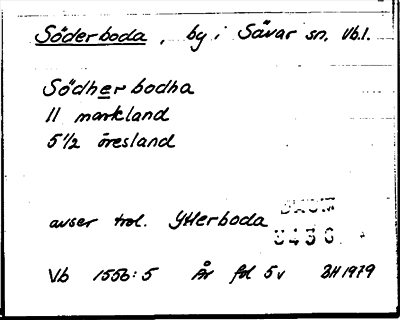 Söderboda, by i Sävar sn, Vb.l.
Södherbodha
11 markland
5 1/2 öresland
avser trol. Ytterboda
Vb 1556:5 År fol 5v BH 1979